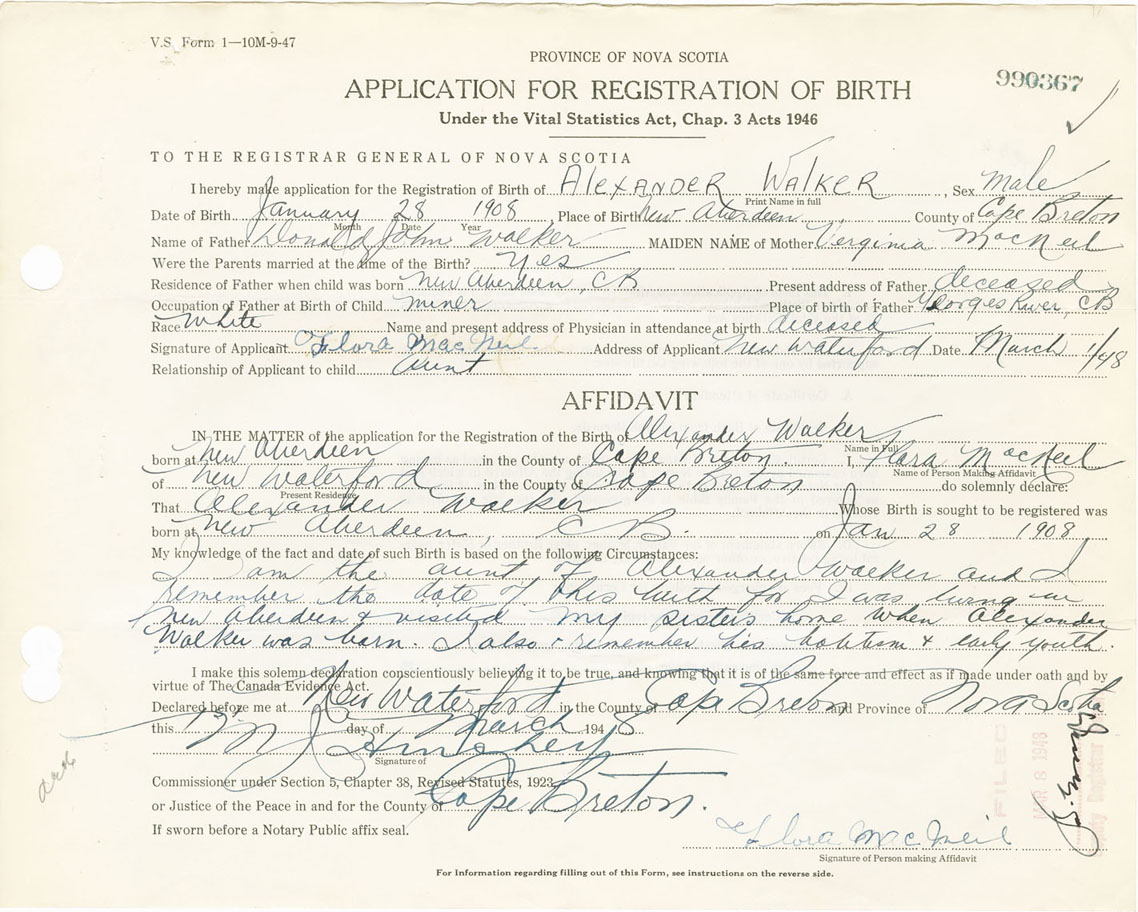 V.S. Form 1—10M-9-47
PROVINCE OF NOVA SCOTIA
990367
APPLICATION FOR REGISTRATION OF BIRTH
Under the Vital Statistics Act, Chap. 3 Acts 1946
TO THE REGISTRAR GENERAL OF NOVA SCOTIA
I hereby make application for the Registration of Birth of ALEXANDER WALKER, Sex Male
Print Name in full
Date of Birth January 28 1908, Place of Birth New Aberdeen, County of Cape Breton
Month Date Year
Name of Father Donald John Walker MAIDEN NAME of Mother Verginia MacNeil
Were the Parents married at the time of the Birth? yes
Residence of Father when child was born New Aberdeen, CB Present address of Father deceased
Occupation of Father at Birth of Child miner Place of birth of Father Georges River, CB
Race White Name and present address of Physician in attendance at birth deceased
Signature of Applicant Flora MacNeil Address of Applicant New Waterford Date March 1/48
Relationship of Applicant to child Aunt
AFFIDAVIT
IN THE MATTER of the application for the Registration of the Birth of Alexander Walker
Name in Full
born at New Aberdeen in the County of Cape Breton. I, Flora MacNeil
Name of Person Making Affidavit
of New Waterford in the County of Cape Breton do solemnly declare:
Present Residence
That Alexander Walker Whose Birth is sought to be registered was
born at New Aberdeen, C B. on Jan 28 1908
My knowledge of the fact and date of such Birth is based on the following Circumstances:
I am the aunt of Alexander Walker and I
remember the date of this birth for I was living in
New Aberdeen & visited my sisters home when Alexander
Walker was born. I also remember his babtism & early youth.
I make this solemn declaration conscientiously believing it to be true, and knowing that it is of the same force and effect as if made under oath and by
virtue of The Canada Evidence Act.
Declared before me at New Waterford in the County of Cape Breton and Province of Nova Scotia
this 1st day of March 1948
M J Hinchey
Signature of
Commissioner under Section 5, Chapter 38, Revised Statutes, 1923
or Justice of the Peace in and for the County of Cape Breton.
If sworn before a Notary Public affix seal.
FILED
MAR 8 1948
Deputy Registrar
Flora MacNeil
Signature of Person making Affidavit
For Information regarding filling out of this Form, see instructions on the reverse side.